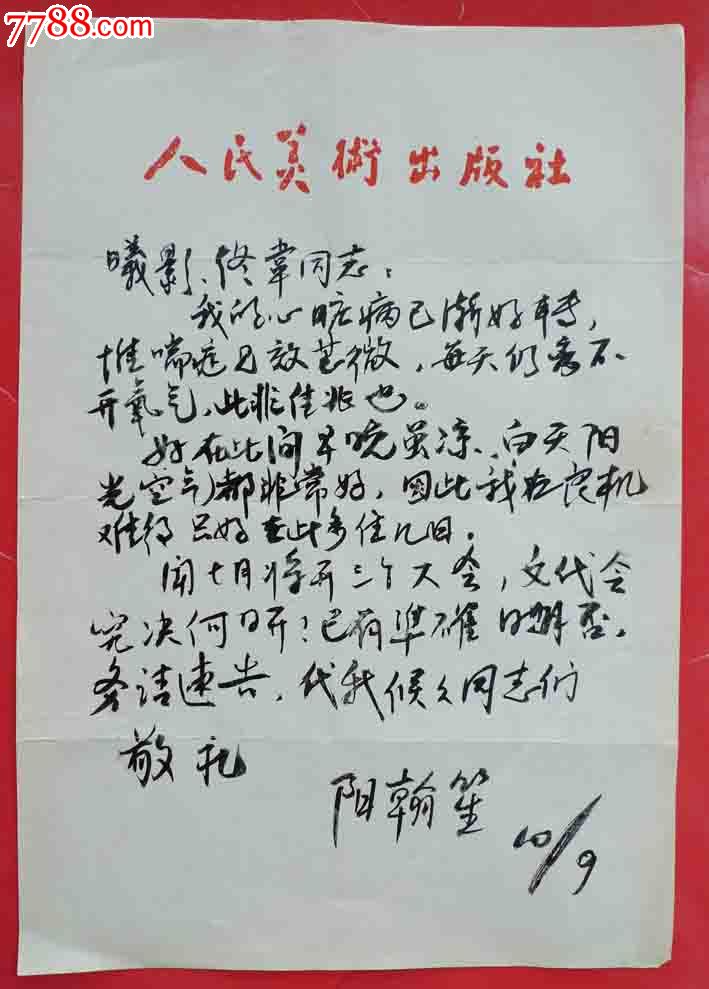 7788.com
人民美術出版社
曦影、佟韋同志：
我的心脏病已渐好转，
惟喘症见效甚微，每天仍离不
开氧气，此非佳兆也。
好在此间早晚虽凉、白天阳
光空气都非常好，因此我在良机
难得只好在此多住几日。
闻七月将开三个大会，文代会
究决何日开？已有準確日期否，
务请速告，代我候
同志们
敬礼
阳翰笙
10/9